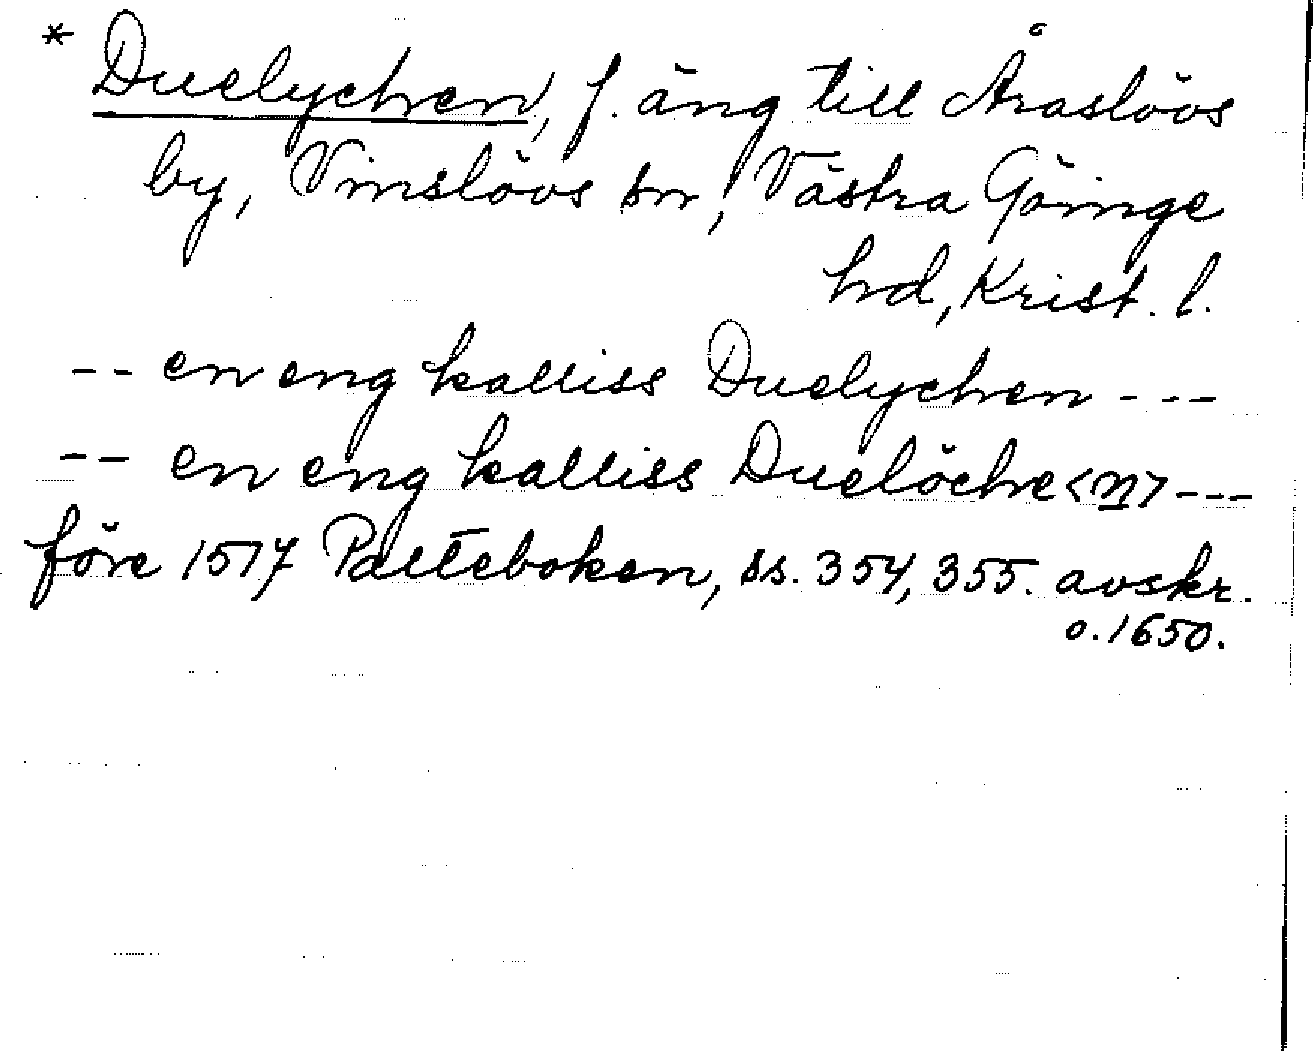 * Duelychen, f. äng till Åraslövs
by, Vinslövs sn, Västra Göinge
hd, Krist. l.
-- en eng kalliss Duelychen ---
-- en eng kalliss Duelöche<n> ---
före 1517 Palteboken, ss. 354, 355. avskr.
o. 1650.